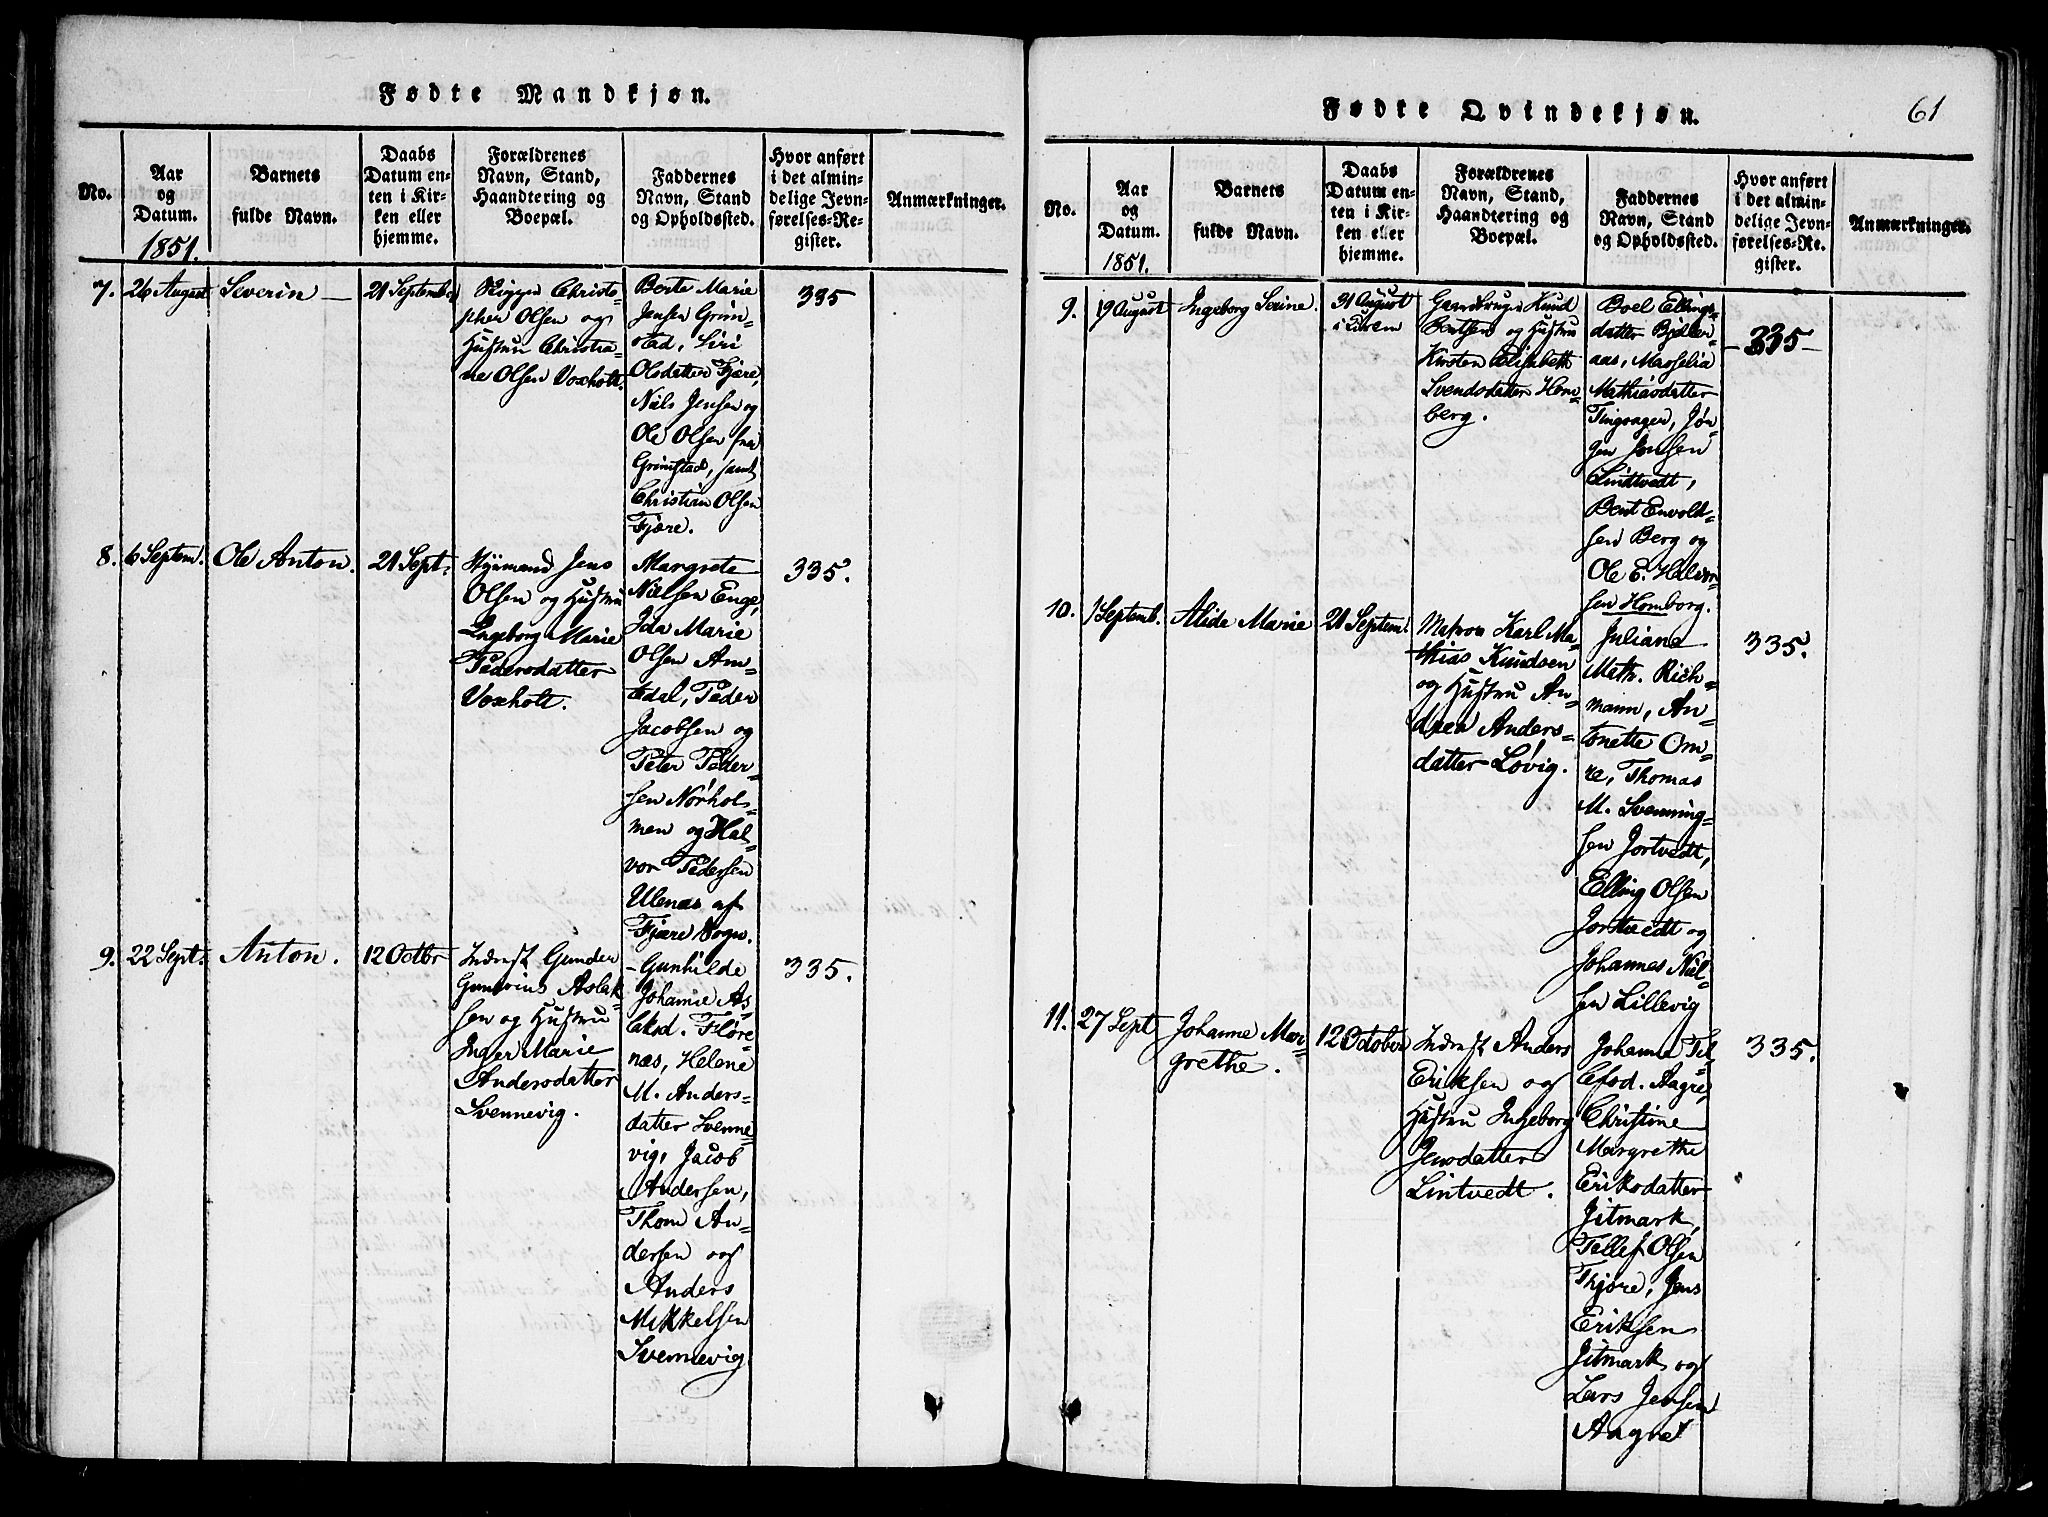 Fødte Mandkjøn.
No.
Aar
og
Datum.
1851.
Barnets
fulde Navn.
Daabs
Datum en-
ten i Kir-
ken eller
hjemme.
Forældrenes
Navn, Stand,
Haandtering og
Boepæl.
Faddernes
Navn, Stand
og Opholdssted.
Hvor anført
i det almin-
delige Jevn-
førelses-Re-
gister.
Anmærkninger.
7.
26 August
Severin
21 Septemb.
Christo-
pher Olsen og
Hustru Christia-
ne Olsen Voxholt.
Berte Marie
Jensen Grim-
stad, Siri
Olsdatter Fjære,
Niels Jensen og
Ole Olsen fra
Grimstad, samt
Christian Olsen
Fjære.
335
8.
6 Septem.
Ole Anton.
21 Sept.
Jens
Olsen og Hustru
Ingeborg Marie
Pedersdatter
Voxholt.
Margrete
Nielsen Enge,
Ida Marie
Olsen Am-
tedal, Peder
Jacobsen og
Peter Peder-
sen Nørhol-
men og Hal-
vor Pedersen
Ulenæs af
Fjære Sogn.
335.
9.
22 Sept.
Anton.
12 Octbr
Inderst Gunder
Gunerius Aslak-
sen og Hustru
Inger Marie
Andersdatter
Svennevig.
Gunhilde
Johanne As-
laksd. Fløre-
næs, Helene
M. Anders-
datter Svenne-
vig, Jacob
Andersen,
Thom An-
dersen og
Anders
Mikkelsen
Svennevig
335.
Fødre Qvindekjøn.
61
No.
Aar
og
Datum.
1851.
Barnets
fulde Navn.
Daabs
Datum en-
ten i Kir-
ken eller
hjemme.
Forældrenes
Navn, Stand,
Haandtering og
Boepæl.
Faddernes
Navn, Stand
og Opholdssted.
Hvor anført
i det almin-
delige Jevn-
førelses-Re-
gister.
Anmærkninger.
9.
19 August
Ingeborg Serine.
31 August
i Kirken
Gaardbruger Knud
Bentsen og Hustru
Kirsten Elisabeth
Svendsdatter Hom-
berg.
Boel Ellings-
datter
aas, Masselia
Mathiasdatter
Tingsager, Jør-
gen Jensen
Lindtvedt,
Bent Envold-
sen Berg og
Ole E. Halvor-
sen Homborg.
335
10.
1 Septemb.
Alide Marie
21 Septem.
Matros Karl Ma-
thias Knudsen
og Hustru An-
drea Anders-
datter Løvig.
Juliane
Math. Rich-
mann, An-
tonette Om-
re, Thomas
M. Svenning-
sen Jortvedt,
Elling Olsen
Jortvedt og
Johannes Niel-
sen Lillevig
335.
11.
27 Sept
Johanne Mar-
grethe.
12 October
Inderst Anders
Eriksen og
Hustru Ingeborg
Jensdatter
Lintvedt.
Johanne Tel-
lefsd. Aagre,
Christine
Margrethe
Eriksdatter
Jitmark,
Tellef Olsen
Thjøre, Jens
Eriksen
Jitmark og
Lars Jensen
Aagre
335.